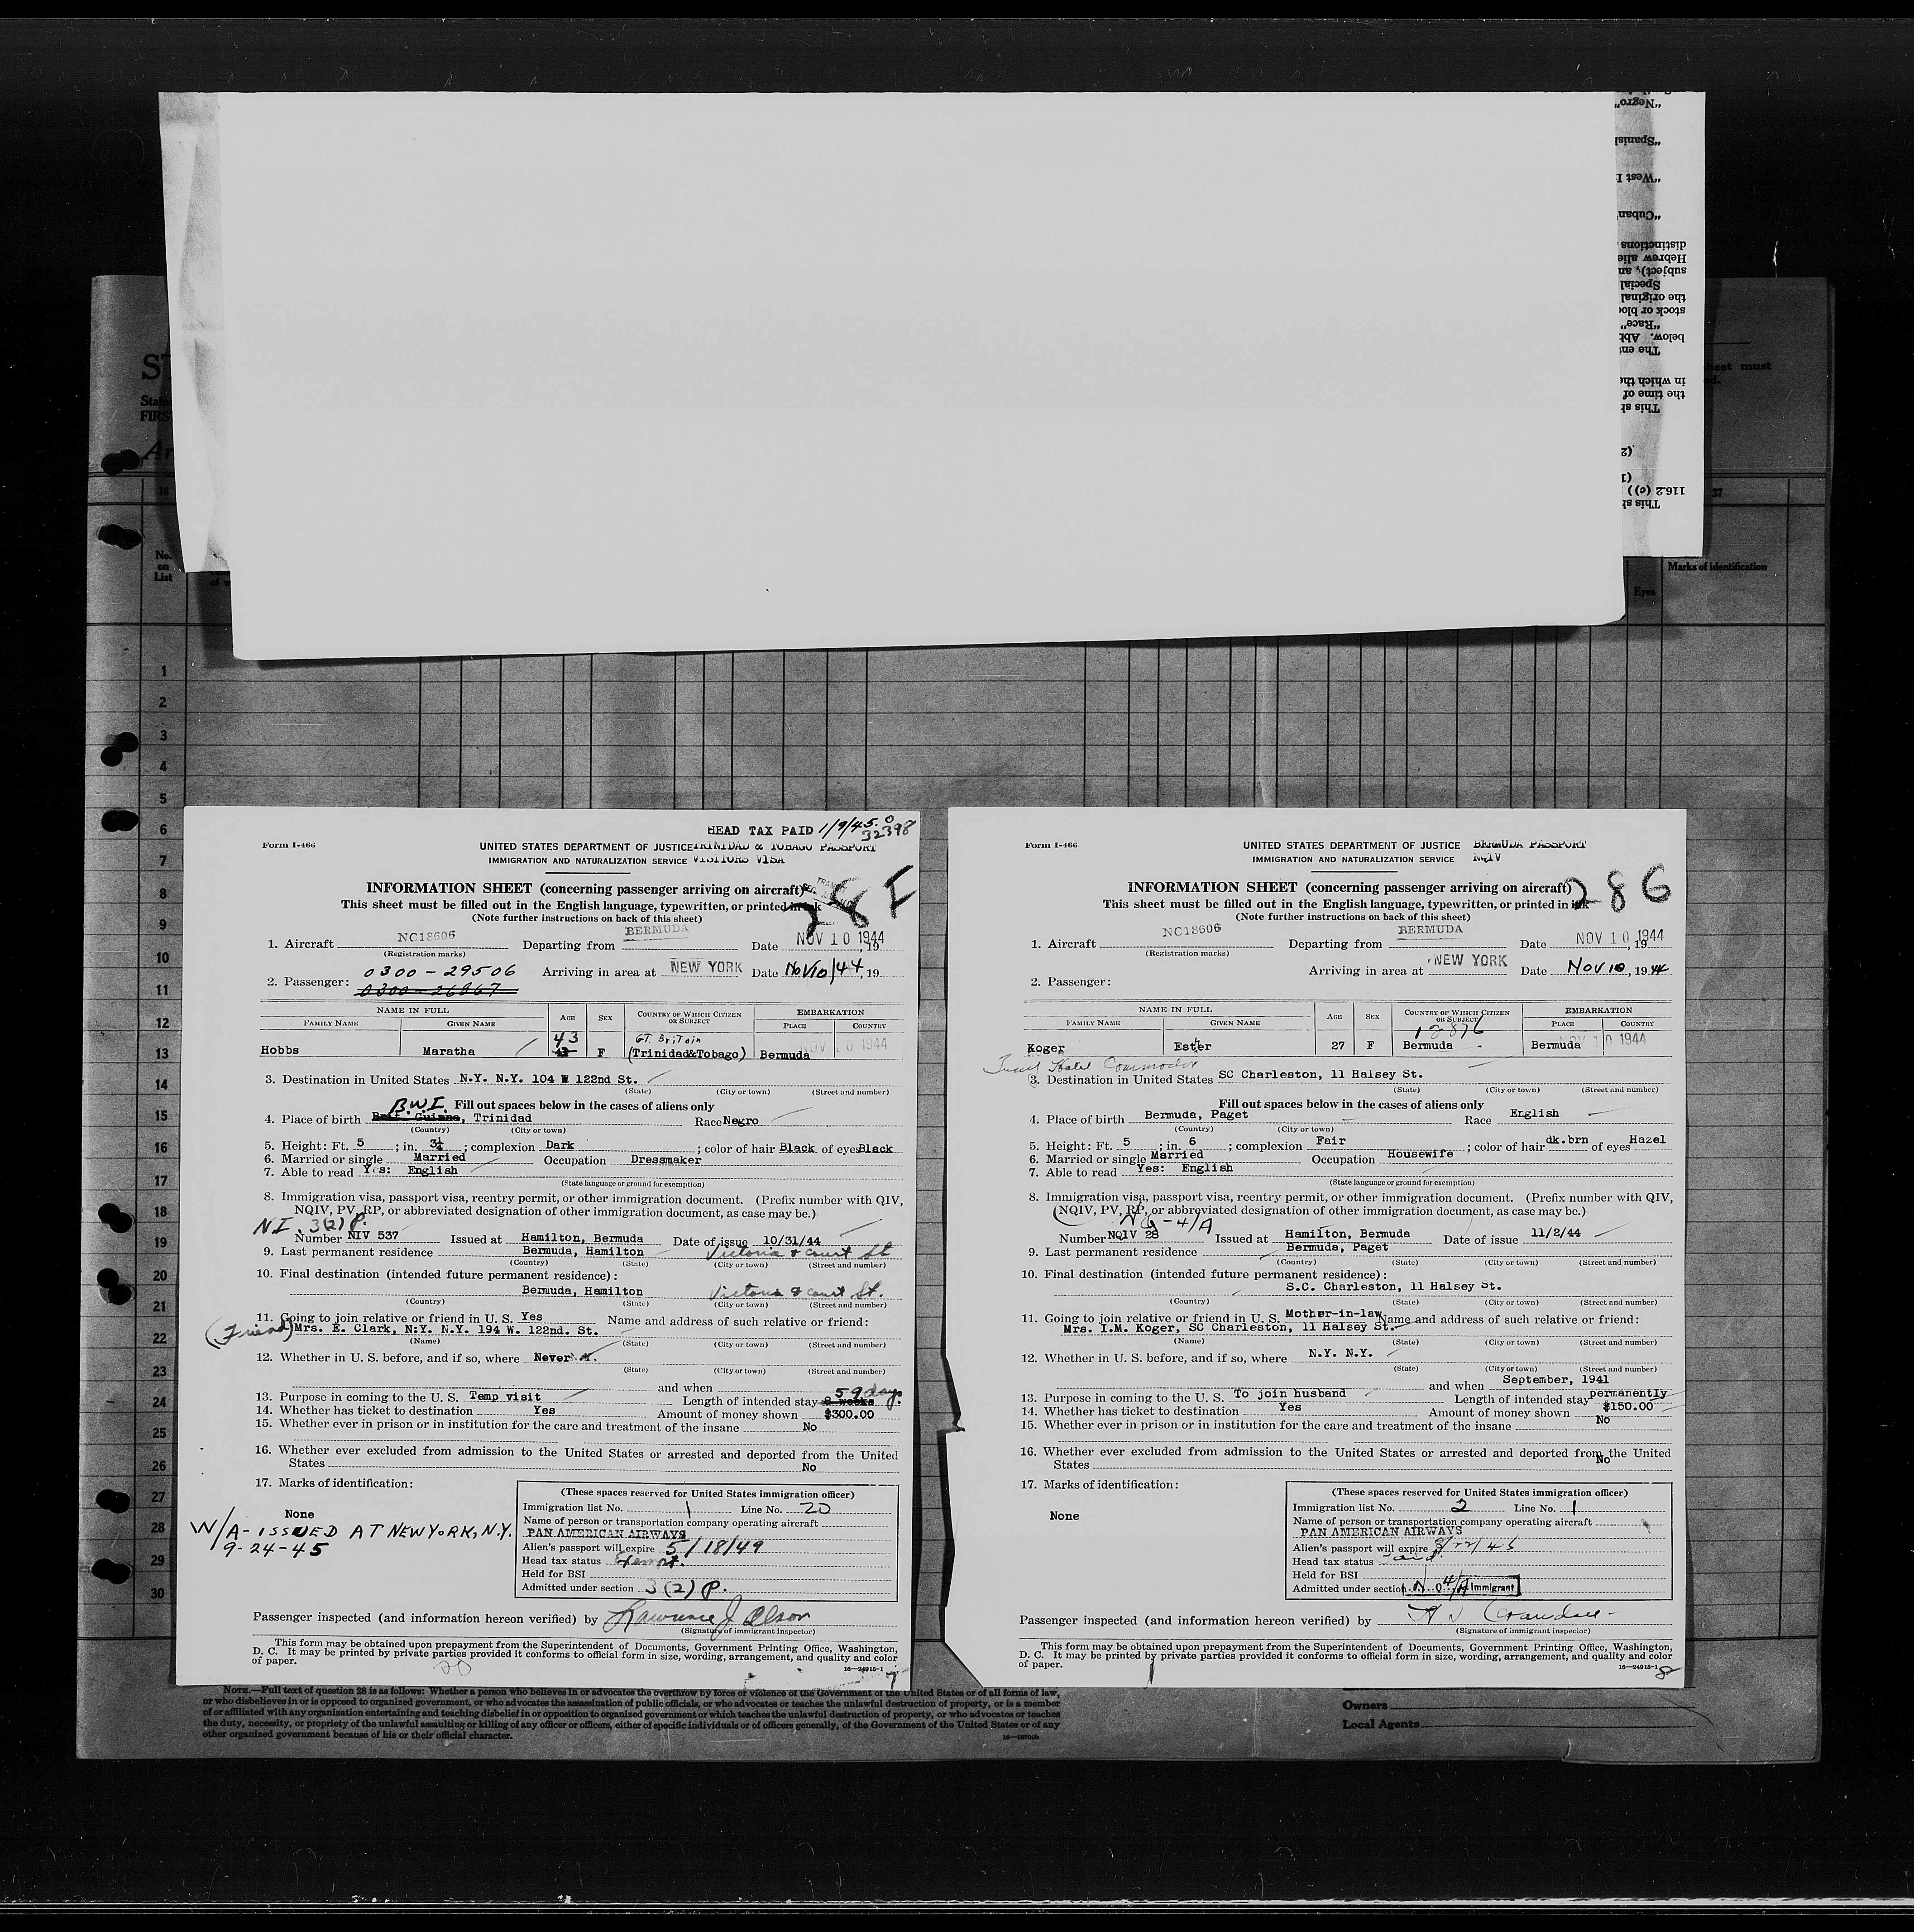 "Negro"
"Spanish
"West I
"Cuban"
distinctions
Hebrew alie
subject), an
Special
the original
stock or bloo
"Race"
below. Abb
The ent
in which the
the time of
This sh
(2)
(1)
116.2 (c))
This sh
heet must
37
16
No.
on
List
Marks of identification
Eyes
1
2
3
4
5
6
7
8
9
10
11
12
13
14
15
16
17
18
19
20
21
22
23
24
25
26
27
28
29
30
HEAD TAX PAID 1/9/45.
32398
Form I-466
UNITED STATES DEPARTMENT OF JUSTICE TRINIDAD & TOBAGO PASSPORT
IMMIGRATION AND NATURALIZATION SERVICE VISITORS VISA
28 F
INFORMATION SHEET (concerning passenger arriving on aircraft)
This sheet must be filled out in the English language, typewritten, or printed in ink
(Note further instructions on back of this sheet)
1. Aircraft NC18606 Departing from BERMUDA Date NOV 10 1944, 19
(Registration marks)
0300-29506 Arriving in area at NEW YORK Date Nov 10/44, 19
2. Passenger: 0300-26867
NAME IN FULL AGE SEX COUNTRY OF WHICH CITIZEN OR SUBJECT EMBARKATION
FAMILY NAME GIVEN NAME PLACE COUNTRY
43 GT. Britain NOV 10 1944
Hobbs Maratha F (Trinidad&Tobago) Bermuda
3. Destination in United States N.Y. N.Y. 104 W 122nd St.
(State) (City or town) (Street and number)
B.W.I. Fill out spaces below in the cases of aliens only
4. Place of birth Brit. Guiana, Trinidad Race Negro
(Country) (City or town)
5. Height: Ft. 5 ; in. 3¼ ; complexion Dark ; color of hair Black of eyes Black
6. Married or single Married Occupation Dressmaker
7. Able to read Yes: English
(State language or ground for exemption)
8. Immigration visa, passport visa, reentry permit, or other immigration document. (Prefix number with QIV,
NQIV, PV, RP, or abbreviated designation of other immigration document, as case may be.)
NI 3(2) P.
Number NIV 537 Issued at Hamilton, Bermuda Date of issue 10/31/44
9. Last permanent residence Bermuda, Hamilton Victoria & Court St
(Country) (State) (City or town) (Street and number)
10. Final destination (intended future permanent residence):
Bermuda, Hamilton Victoria & Court St.
(Country) (State) (City or town) (Street and number)
11. Going to join relative or friend in U. S. Yes Name and address of such relative or friend:
(Friend) Mrs. E. Clark, N:Y. N.Y. 194 W. 122nd. St.
(Name) (State) (City or town) (Street and number)
12. Whether in U. S. before, and if so, where Never
(State) (City or town) (Street and number)
and when
13. Purpose in coming to the U. S. Temp visit Length of intended stay 8 weeks 59 days.
14. Whether has ticket to destination Yes Amount of money shown $300.00
15. Whether ever in prison or in institution for the care and treatment of the insane No
16. Whether ever excluded from admission to the United States or arrested and deported from the United
States No
17. Marks of identification:
None
W/A-ISSUED AT NEW YORK, N.Y.
9-24-45
(These spaces reserved for United States immigration officer)
Immigration list No. 1 Line No. 20
Name of person or transportation company operating aircraft
PAN AMERICAN AIRWAYS
Alien's passport will expire 5/18/49
Head tax status Exempt.
Held for BSI
Admitted under section 3(2) P.
Passenger inspected (and information hereon verified) by Lawrence J Olson
(Signature of immigrant inspector)
This form may be obtained upon prepayment from the Superintendent of Documents, Government Printing Office, Washington,
D. C. It may be printed by private parties provided it conforms to official form in size, wording, arrangement, and quality and color
of paper.
16—24915-1
20
7
Form I-466
UNITED STATES DEPARTMENT OF JUSTICE BERMUDA PASSPORT
IMMIGRATION AND NATURALIZATION SERVICE NQIV
28 G
INFORMATION SHEET (concerning passenger arriving on aircraft)
This sheet must be filled out in the English language, typewritten, or printed in ink
(Note further instructions on back of this sheet)
1. Aircraft NC18606 Departing from BERMUDA Date NOV 10 1944, 19
(Registration marks)
Arriving in area at NEW YORK Date Nov 10, 1944
2. Passenger:
NAME IN FULL AGE SEX COUNTRY OF WHICH CITIZEN OR SUBJECT EMBARKATION
FAMILY NAME GIVEN NAME PLACE COUNTRY
12876 NOV 10 1944
Koger Esther 27 F Bermuda Bermuda
Hotel Commodore
3. Destination in United States SC Charleston, 11 Halsey St.
(State) (City or town) (Street and number)
Fill out spaces below in the cases of aliens only
4. Place of birth Bermuda, Paget Race English
(Country) (City or town)
5. Height: Ft. 5 ; in. 6 ; complexion Fair ; color of hair dk.brn of eyes Hazel
6. Married or single Married Occupation Housewife
7. Able to read Yes: English
(State language or ground for exemption)
8. Immigration visa, passport visa, reentry permit, or other immigration document. (Prefix number with QIV,
NQIV, PV, RP, or abbreviated designation of other immigration document, as case may be.)
NQ-4/A
Number NQIV 28 Issued at Hamilton, Bermuda Date of issue 11/2/44
9. Last permanent residence Bermuda, Paget
(Country) (State) (City or town) (Street and number)
10. Final destination (intended future permanent residence):
S.C. Charleston, 11 Halsey St.
(Country) (State) (City or town) (Street and number)
11. Going to join relative or friend in U. S. Mother-in-law Name and address of such relative or friend:
Mrs. I.M. Koger, SC Charleston, 11 Halsey St.
(Name) (State) (City or town) (Street and number)
12. Whether in U. S. before, and if so, where N.Y. N.Y.
(State) (City or town) (Street and number)
and when September, 1941
13. Purpose in coming to the U. S. To join husband Length of intended stay permanently
14. Whether has ticket to destination Yes Amount of money shown $150.00
15. Whether ever in prison or in institution for the care and treatment of the insane No
16. Whether ever excluded from admission to the United States or arrested and deported from the United
States No
17. Marks of identification:
None
(These spaces reserved for United States immigration officer)
Immigration list No. 2 Line No. 1
Name of person or transportation company operating aircraft
PAN AMERICAN AIRWAYS
Alien's passport will expire
Head tax status Paid
Held for BSI
Admitted under section 4/A Immigrant
Passenger inspected (and information hereon verified) by
(Signature of immigrant inspector)
This form may be obtained upon prepayment from the Superintendent of Documents, Government Printing Office, Washington,
D. C. It may be printed by private parties provided it conforms to official form in size, wording, arrangement, and quality and color
of paper.
16—24915-1
1
8
NOTE.—Full text of question 28 is as follows: Whether a person who believes in or advocates the overthrow by force or violence of the Government of the United States or of all forms of law,
or who disbelieves in or is opposed to organized government, or who advocates the assassination of public officials, or who advocates or teaches the unlawful destruction of property, or is a member
of or affiliated with any organization entertaining and teaching disbelief in or opposition to organized government or which teaches the unlawful destruction of property, or who advocates or teaches
the duty, necessity, or propriety of the unlawful assaulting or killing of any officer or officers, either of specific individuals or of officers generally, of the Government of the United States or of any
other organized government because of his or their official character.
Owners
Local Agents